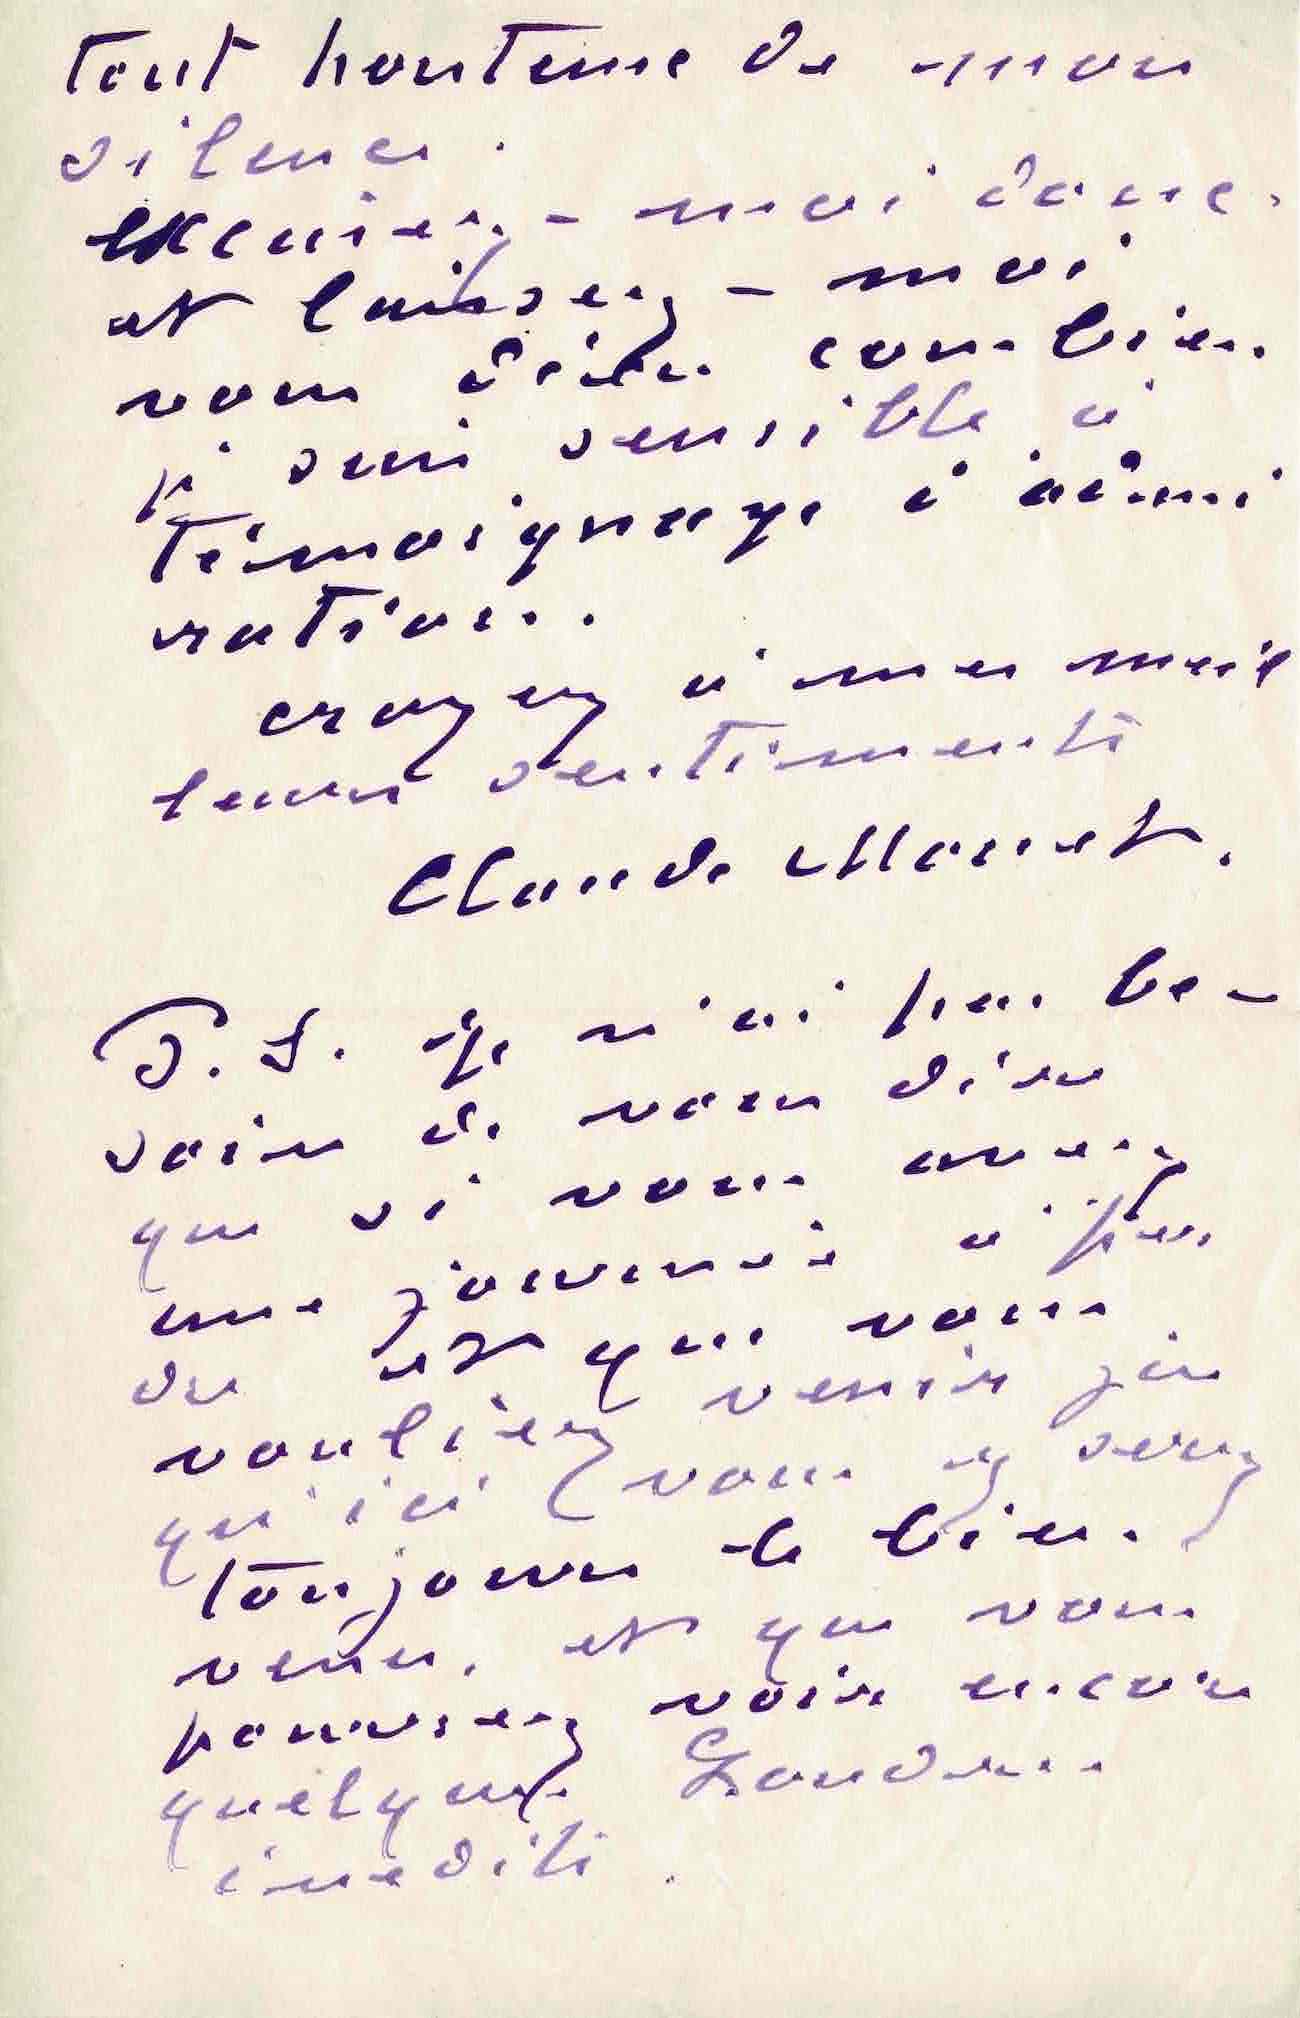 tout honteux de mon
silence.
excusez-moi donc
et laissez-moi
vous dire combien
je suis sensible à
témoignage d'admi
ration.
croyez à mes meil
leurs sentiments
Claude Monet.
P. S. Je n'ai pas be-
soin de vous dire
que si vous avez
une journée à per
dre et que vous
vouliez venir jus
qu'ici vous y serez
toujours le bien
venu, et que vous
pourriez voir encore
quelques Londres
inédits.